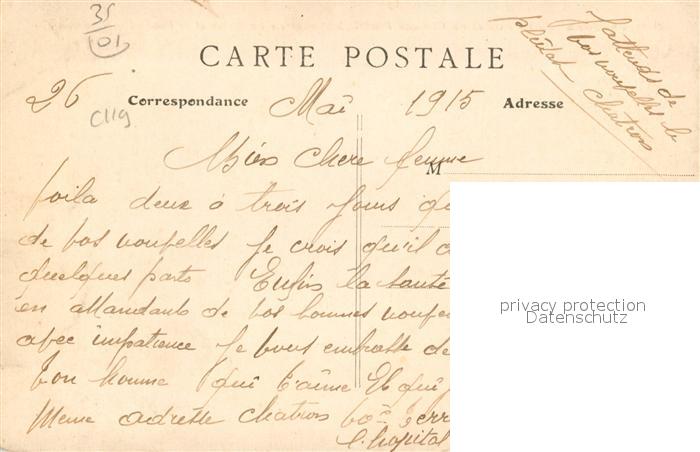 35
/01
CARTE POSTALE
26 Correspondance Mai 1915 Adresse
C119
J'attends de
vos nouvelles le
plutot Chatron
Bien chere femme
M
Voila deux à trois jours
de vos nouvelles je crois qu'il
quelques parts Enfin la santé
en attandants de vos bonnes
avec impatience je vous embrasse de
Ton homme qui t'aime Et qui
Meme adresse Chatron
L'hopital
privacy protection
Datenschutz